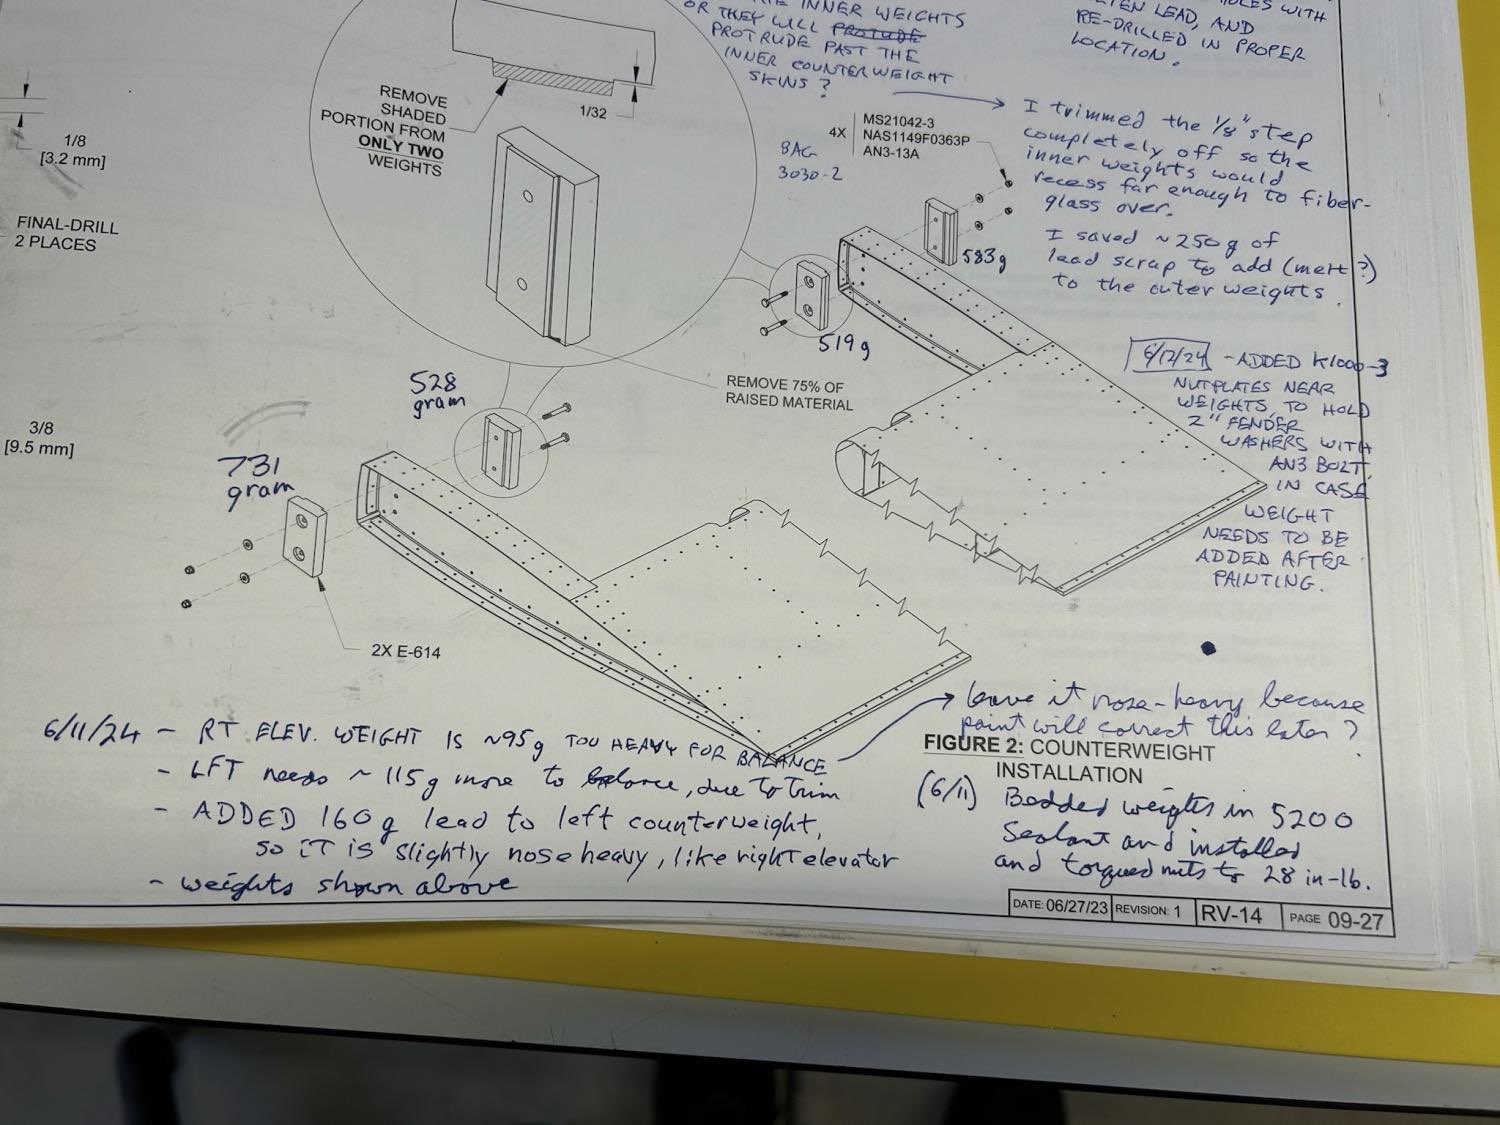 INNER WEIGHTS
OR THEY WILL PROTUDE
PROTRUDE PAST THE
INNER COUNTERWEIGHT
SKINS?
WITH
LEAD, AND
RE-DRILLED IN PROPER
LOCATION.
REMOVE
SHADED
PORTION FROM
ONLY TWO
WEIGHTS
1/32
1/8
[3.2 mm]
FINAL-DRILL
2 PLACES
3/8
[9.5 mm]
4X
MS21042-3
NAS1149F0363P
AN3-13A
BAG
3030-2
I trimmed the 1/8" step
completely off so the
inner weights would
recess far enough to fiber-
glass over.
I saved ~250g of
lead scrap to add (melt?)
to the outer weights.
583g
519g
REMOVE 75% OF
RAISED MATERIAL
528
gram
731
gram
2X E-614
6/12/24 - ADDED K1000-3
NUTPLATES NEAR
WEIGHTS, TO HOLD
2" FENDER
WASHERS WITH
AN3 BOLT,
IN CASE
WEIGHT
NEEDS TO BE
ADDED AFTER
PAINTING.
6/11/24 - RT ELEV. WEIGHT IS ~95g TOO HEAVY FOR BALANCE
- LFT needs ~ 115g more to balance, due to trim
- ADDED 160g lead to left counterweight,
so it is slightly nose heavy, like right elevator
- weights shown above
leave it nose-heavy because
paint will correct this later?
FIGURE 2: COUNTERWEIGHT
INSTALLATION
(6/11) Bedded weights in 5200
Sealant and installed
and torqued nuts to 28 in-lb.
DATE: 06/27/23 REVISION: 1 RV-14 PAGE 09-27